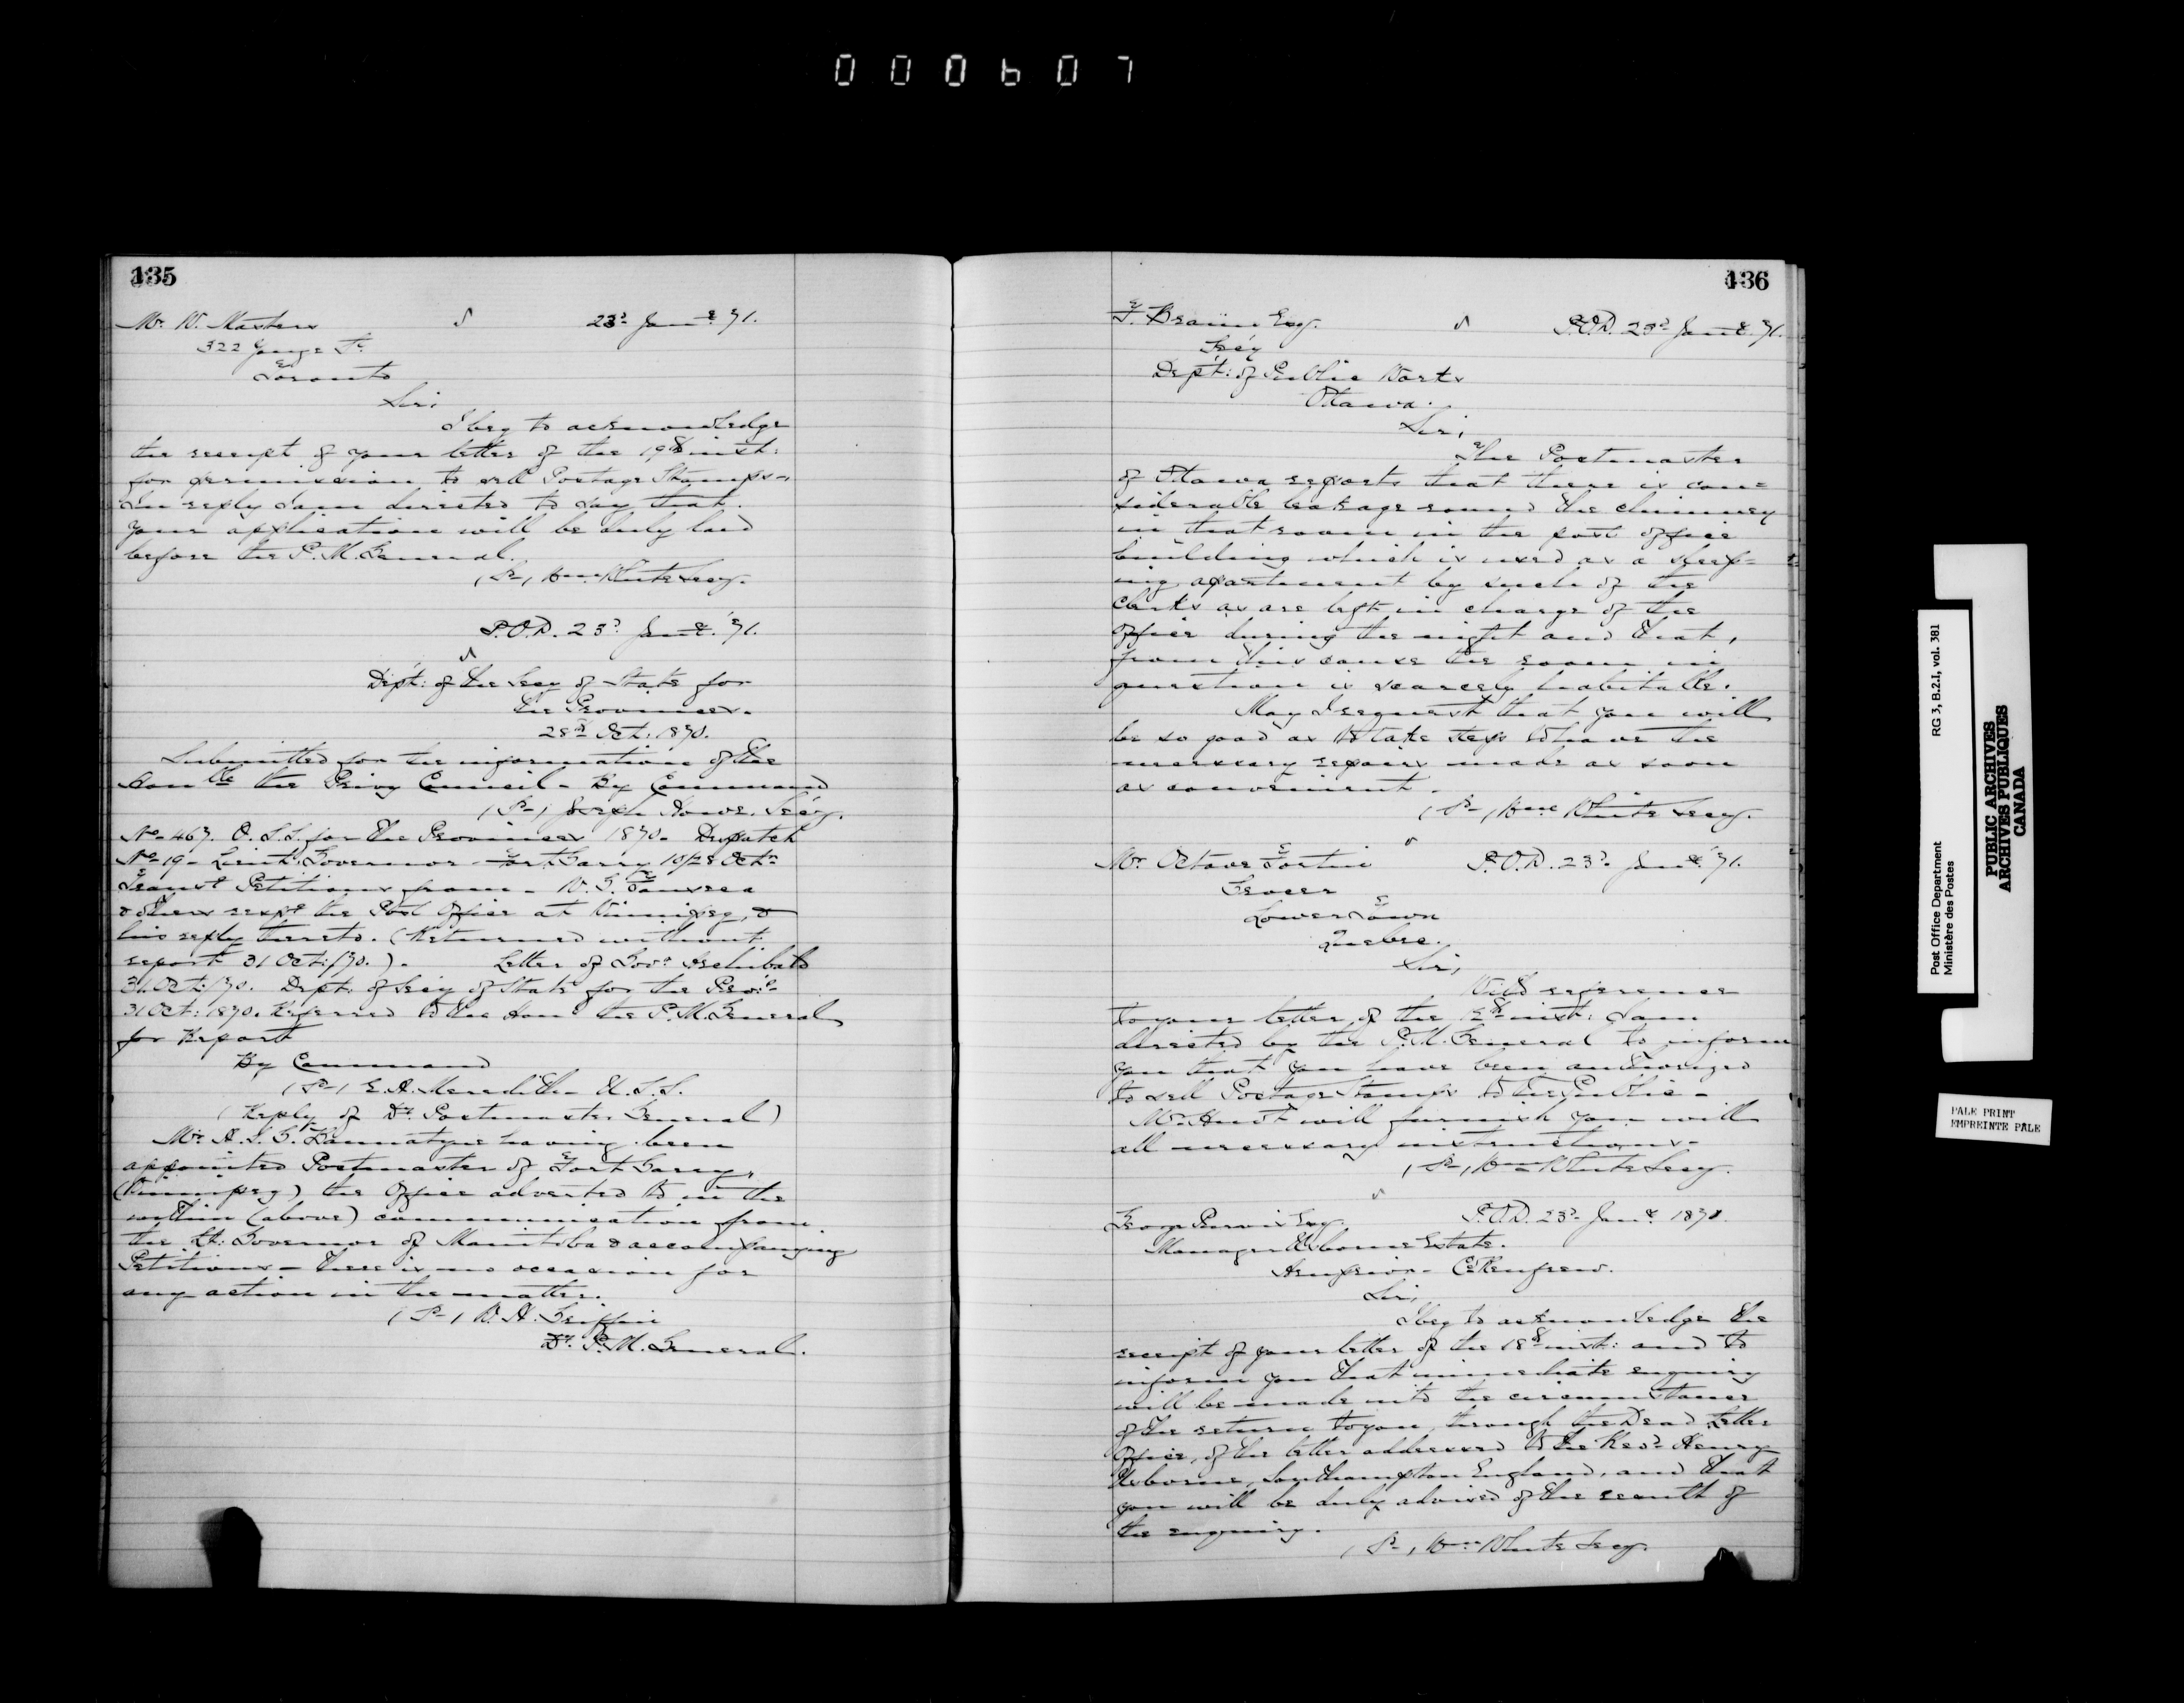 000607
135
Mr. W. Masters 23d Jany. '71.
322 Yonge St.
Toronto
Sir,
I beg to acknowledge
the receipt of your letter of the 19th inst:
for permission to sell Postage Stamps—
In reply I am directed to say that
your application will be duly laid
before the P. M. General.
(Sd) Wm White Secy.
P.O.D. 23d. Jany. '71.
Dept: of the Secy of State for
the Provinces.
28th Oct: 1870.
Submitted for the information of the
Honble the Privy Council - By Command
(Sd) Joseph Howe. Secy.
No. 467. O.S.S. for the Provinces 1870 - Despatch
No. 19 - Lieut: Governor - Fort Garry 10/28 Oct:
Transt Petitions from - W. G.
& others respg the Post Office at Winnipeg, &
his reply thereto. (Returned without
report 31 Oct:/70.). Letter of Govr Archibald
31 Oct:/70. Dept. of Secy of State for the Prov:s
31 Oct: 1870. Referred to the Hon the P.M. General
for Report
By Command
(Sd) E. A. Meredith U.S.S.
(Reply of Dy. Postmaster General)
Mr. A. G. B. Bannatyne having been
appointed Postmaster of Fort Garry,
(Winnipeg) the Office adverted to in the
within (above) communication from
the Lt: Governor of Manitoba & accompanying
Petitions - there is no occasion for
any action in the matter.
(Sd) W. H. Griffin
Dy. P. M. General.
136
F. Braün Esq. P.O.D. 23d Jany. '71.
Secy
Dept: of Public Works
Ottawa.
Sir,
The Postmaster
of Ottawa reports that there is con=
siderable leakage round the chimney
in that room in the post office
building which is used as a sleep=
ing apartment by such of the
Clerks as are left in charge of the
office during the night and that,
from this cause the room in
question is scarcely habitable.
May I request that you will
be so good as to take steps to have the
necessary repairs made as soon
as convenient.
(Sd) Wm White Secy.
Mr. Octave Fortin P.O.D. 23d. Jany '71.
Grocer
Lower Town
Quebec.
Sir,
With reference
to your letter of the 12th inst: I am
directed by the P.M. General to inform
you that you have been authorized
to sell Postage Stamps to the Public -
Mr. Huot will furnish you with
all necessary instructions.
(Sd) Wm White Secy.
George Purvis Esq. P.O.D. 23d Jany. 1871.
Manager Usborne Estate.
Arnprior - Co. Renfrew.
Sir,
I beg to acknowledge the
receipt of your letter of the 18th inst: and to
inform you that immediate enquiry
will be made into the circumstances
of the return to you, through the Dead Letter
Office, of the letter addressed to the Revd Henry
Usborne, Southampton England, and that
you will be duly advised of the result of
the enquiry.
(Sd) Wm White Secy.
Post Office Department RG 3, B.2.I, vol. 381
Ministère des Postes
PUBLIC ARCHIVES
ARCHIVES PUBLIQUES
CANADA
PALE PRINT
EMPREINTE PALE